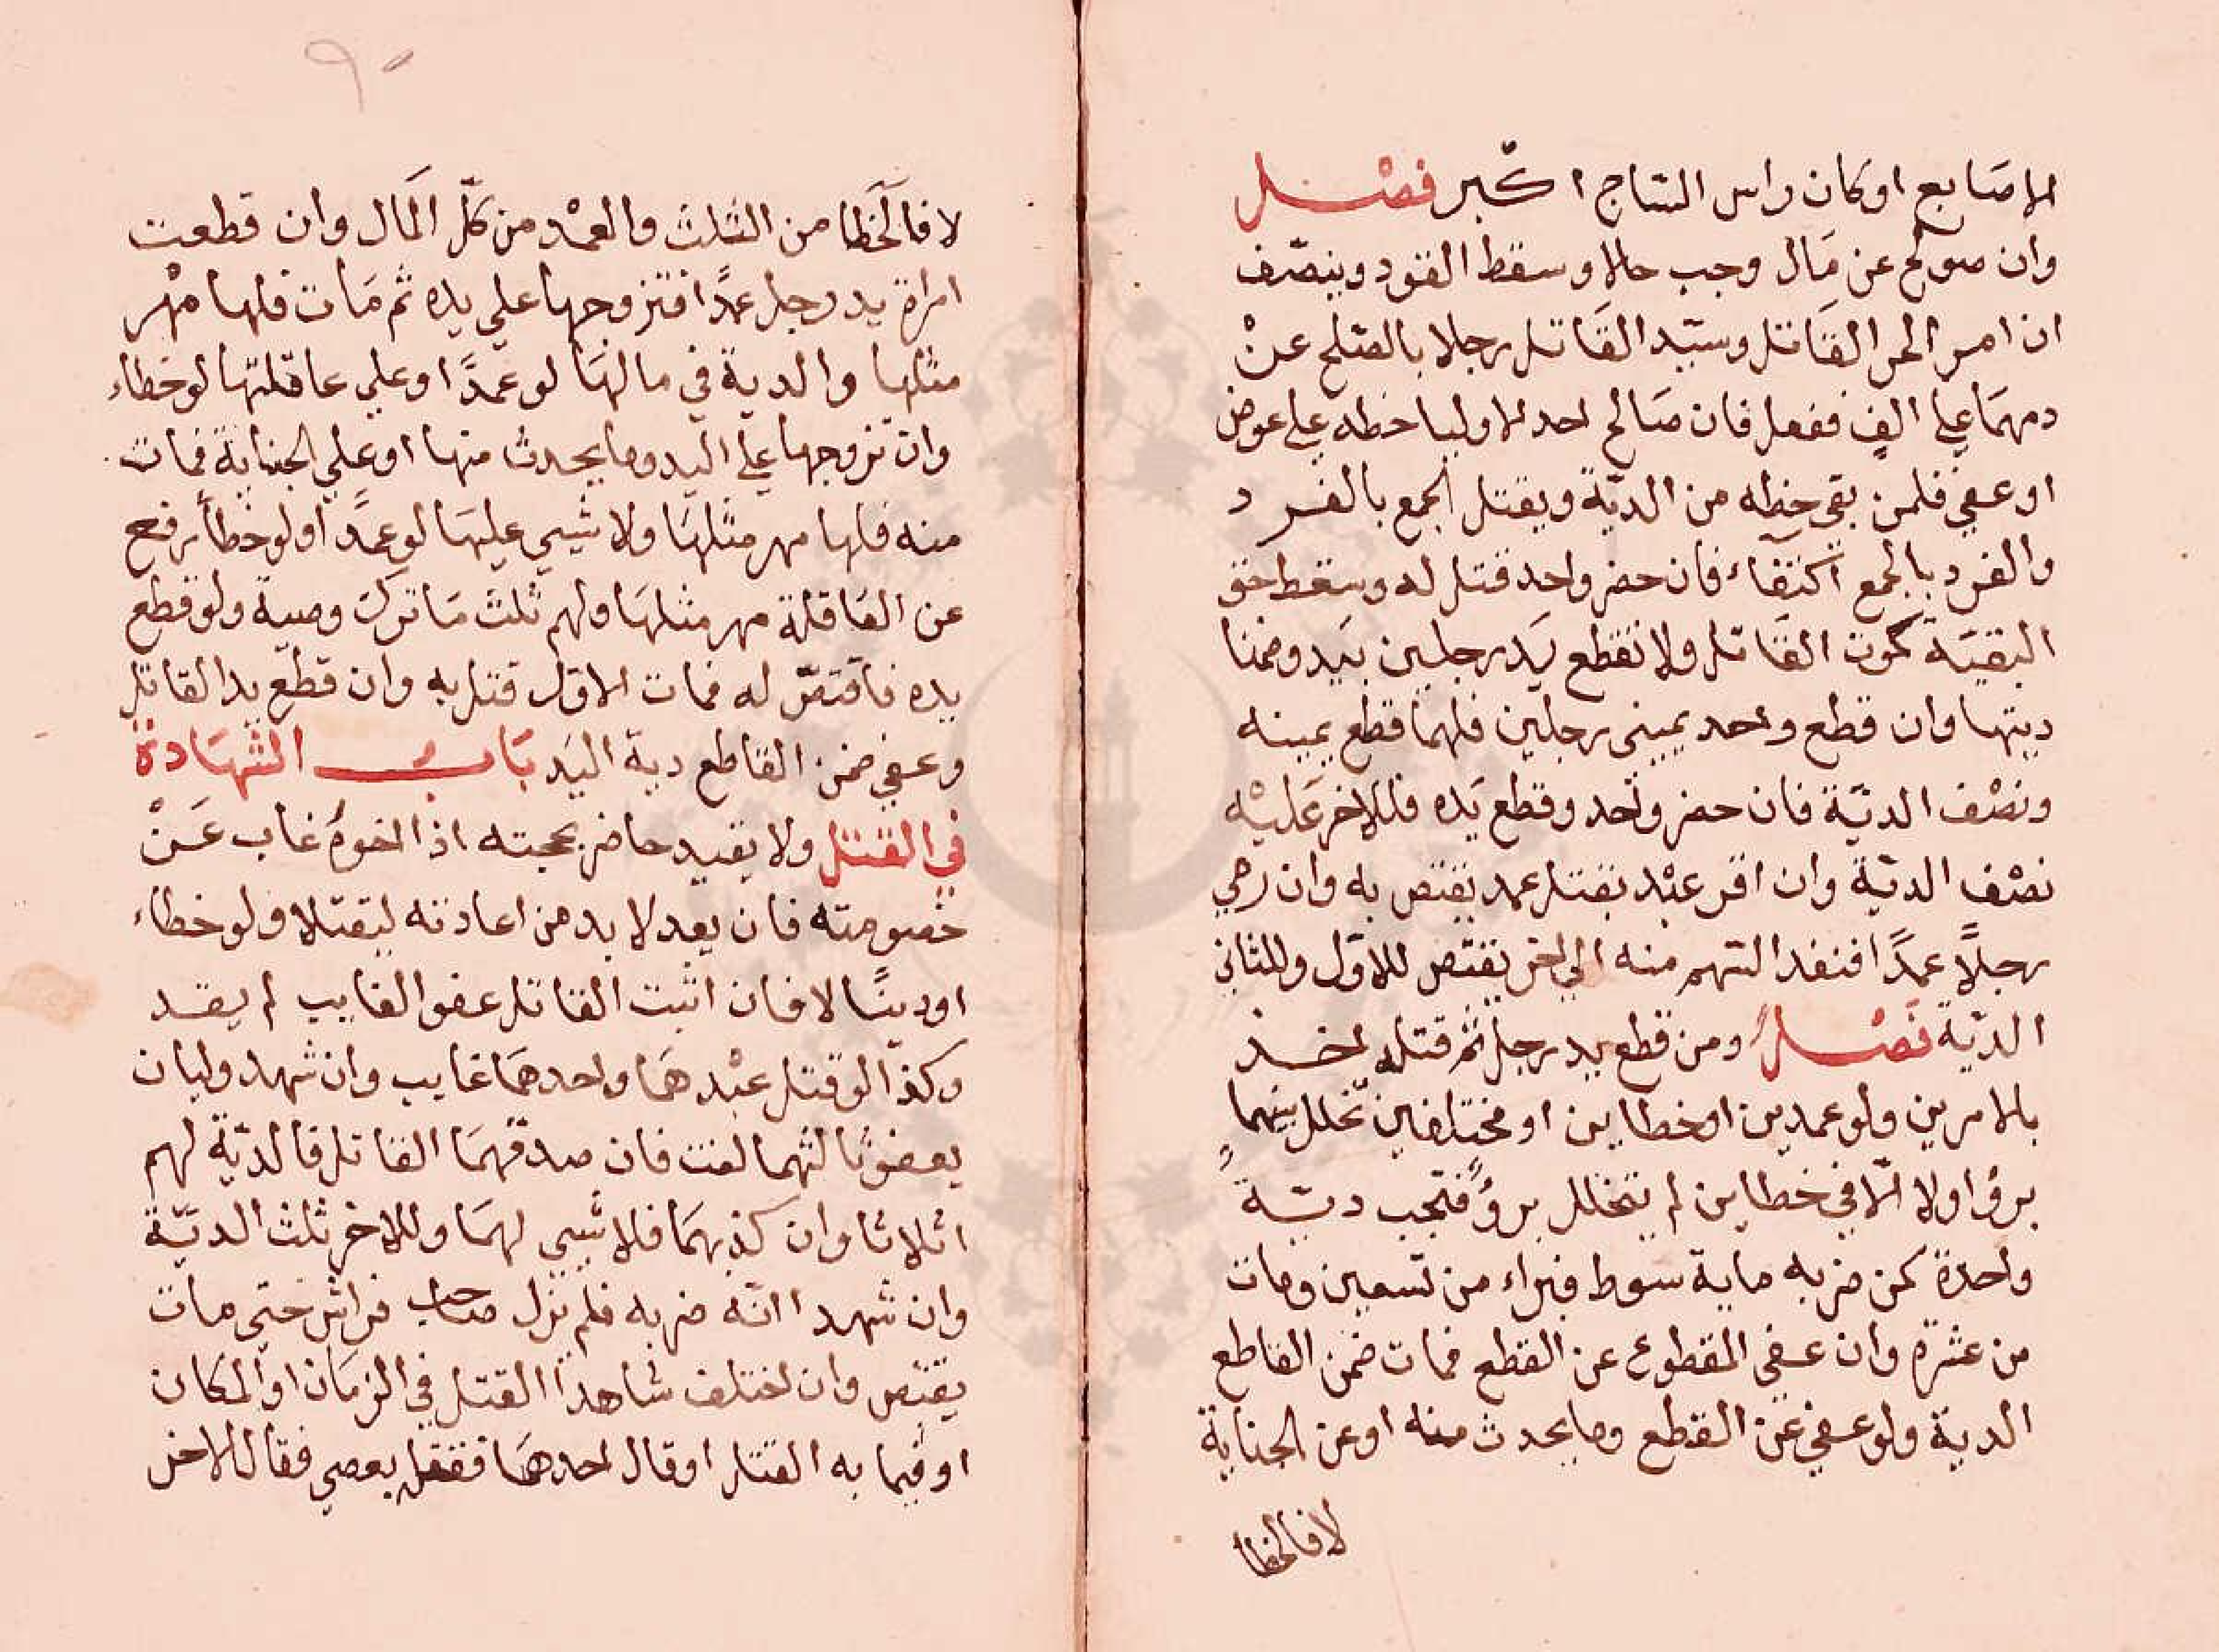 الاصَابع او كان راس الشاج اكبر فصْل
وان صولح عن مَال وجب حالا وسقط القود وينصّف
ان امر الحر القَاتل وسيّد القَاتل رجلا بالصّلح عنْ
دمهمَا علي الفٍ ففعل فان صَالح احد الاوليا حظه علي عوض
او عفي فلمن بقي حظه من الديّة ويقتل الجمع بالفرد
والفرد بالجمع اكتفاء فان حضر واحد قتل له وسقط حق
البقيّة كموت القاتل ولا تقطع يَد رجلين بيَد وضمنا
ديتها وان قطع واحد يميني رجلين فلهما قطع يمينه
ونصْف الديّة فان حضر واحد وقطع يَده فللاخر عَليْه
نصْف الديّة وان اقر عبْد بقتل عمد يقتص به وان رمي
رجلًا عمدًا فنفد السّهم منه الي اخر يقتص للاوّل وللثاني
الديّة فصْل ومن قطع يد رجل ثم قتله اخذ
بالامرين ولو عمدين او خطاين او مختلفين تخلل بينهما
برؤ اولا الّا في خطاين لم يتخلل برؤٌ فتجب ديّة
واحدة كمن ضربه ماية سوط فبراء من تسعين ومات
من عشرة وان عفي المقطوع عن القطع فمات ضمن القاطع
الدية ولو عفي عن القطع وما يحدث منه او عن الجناية
لا فالخطا
٩٠
لا فالخَطا من الثلث والعمْد من كلّ المَال وان قطعت
امراة يد رجل عمدًا فتزوجها علي يده ثم مَات فلها مهْر
مثلها والدية في مالهَا لو عمدًا وعلي عاقلتها لو خطاء
وان تزوجها علي اليد وما يحدث منها او علي الجناية فمات
منه فلها مهر مثلهَا ولا شيي عليهَا لو عمدًا ولو خطأ رفع
عن العَاقلة مهر مثلهَا ولهم ثلث مَا ترك وصية ولو قطع
يده فاقتصّ له فمات الاوّل قتل به وان قطع يد القاتل
وعفي ضمن القاطع دية اليَد بَاب الشهَادة
في القتل ولا يقيد حاضر بحجته اذا اخوهُ غاب عَنْ
خصومته فان يعد لا بد من اعادته ليقتلا ولو خطاء
او دينًا لا فان اثبت القاتل عفو الغايب لم يقد
وكذا لو قتل عبْدهمَا واحدهمَا غايب وان شهد وليان
يعفو ثالثهما لغت فان صدقهمَا القاتل فالديّة لهم
اثلاثا وان كذبهمَا فلا شيي لهمَا وللاخر ثلث الديّة
وان شهدا انّه ضربه فلم يزل صاحب فراش حتي مات
يقتص وان اختلف شاهدا القتل في الزمَان او المكان
او فيما به القتل او قال احدهمَا فقتل بعصي فقال الاخر